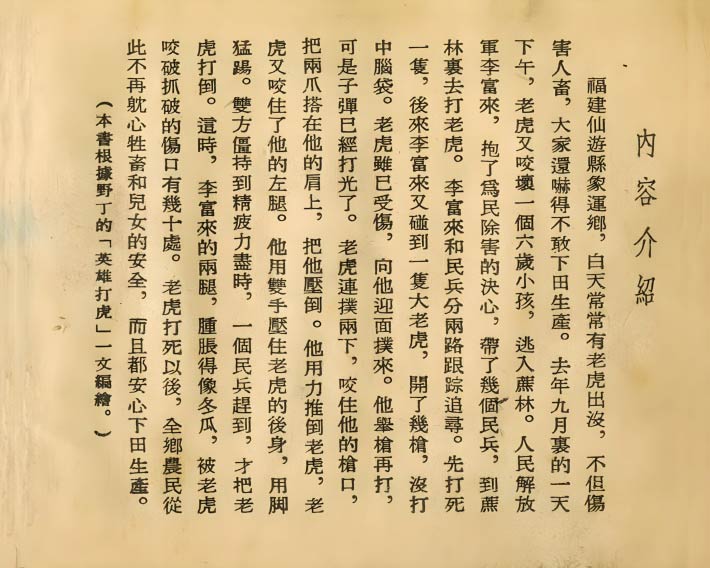 內容介紹
福建仙遊縣象運鄉，白天常常有老虎出沒，不但傷
害人畜，大家還嚇得不敢下田生產。去年九月裏的一天
下午，老虎又咬壞一個六歲小孩，逃入蔗林。人民解放
軍李富來，抱了爲民除害的決心，帶了幾個民兵，到蔗
林裏去打老虎。李富來和民兵分兩路跟踪追尋。先打死
一隻，後來李富來又碰到一隻大老虎，開了幾槍，沒打
中腦袋。老虎雖已受傷，向他迎面撲來。他舉槍再打，
可是子彈已經打光了。老虎連撲兩下，咬住他的槍口，
把兩爪搭在他的肩上，把他壓倒。他用力推倒老虎，老
虎又咬住了他的左腿。他用雙手壓住老虎的後身，用脚
猛踢。雙方僵持到精疲力盡時，一個民兵趕到，才把老
虎打倒。這時，李富來的兩腿，腫脹得像冬瓜，被老虎
咬破抓破的傷口有幾十處。老虎打死以後，全鄉農民從
此不再躭心牲畜和兒女的安全，而且都安心下田生產。
（本書根據野丁的「英雄打虎」一文編繪。）